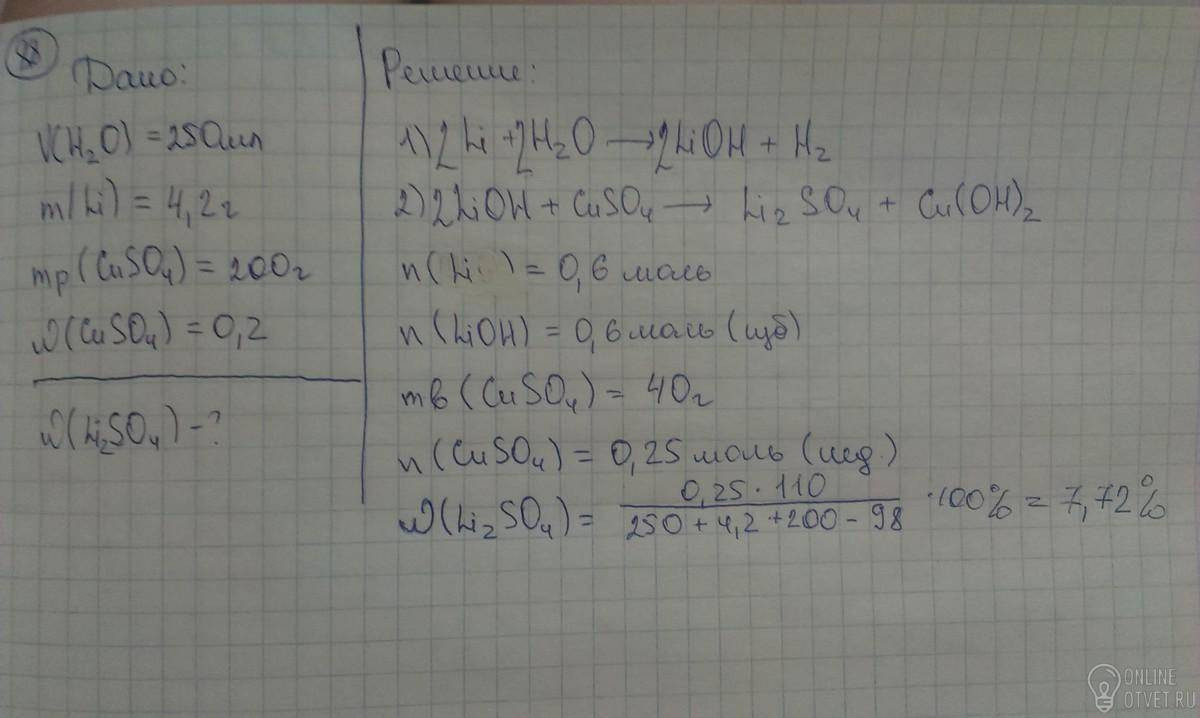 88
Дано:
V(H₂O) = 250мл
m(Li) = 4,2г
mр(CuSO₄) = 200г
ω(CuSO₄) = 0,2
ω(Li₂SO₄) - ?
Решение:
1) 2Li + 2H₂O → 2LiOH + H₂
2) 2LiOH + CuSO₄ → Li₂SO₄ + Cu(OH)₂
n(Li ) = 0,6 моль
n(LiOH) = 0,6 моль (изб)
mв(CuSO₄) = 40г
n(CuSO₄) = 0,25 моль (нед.)
ω(Li₂SO₄) = 0,25 · 110 / 250 + 4,2 + 200 - 98 · 100% = 7,72%
ONLINE
OTVET.RU